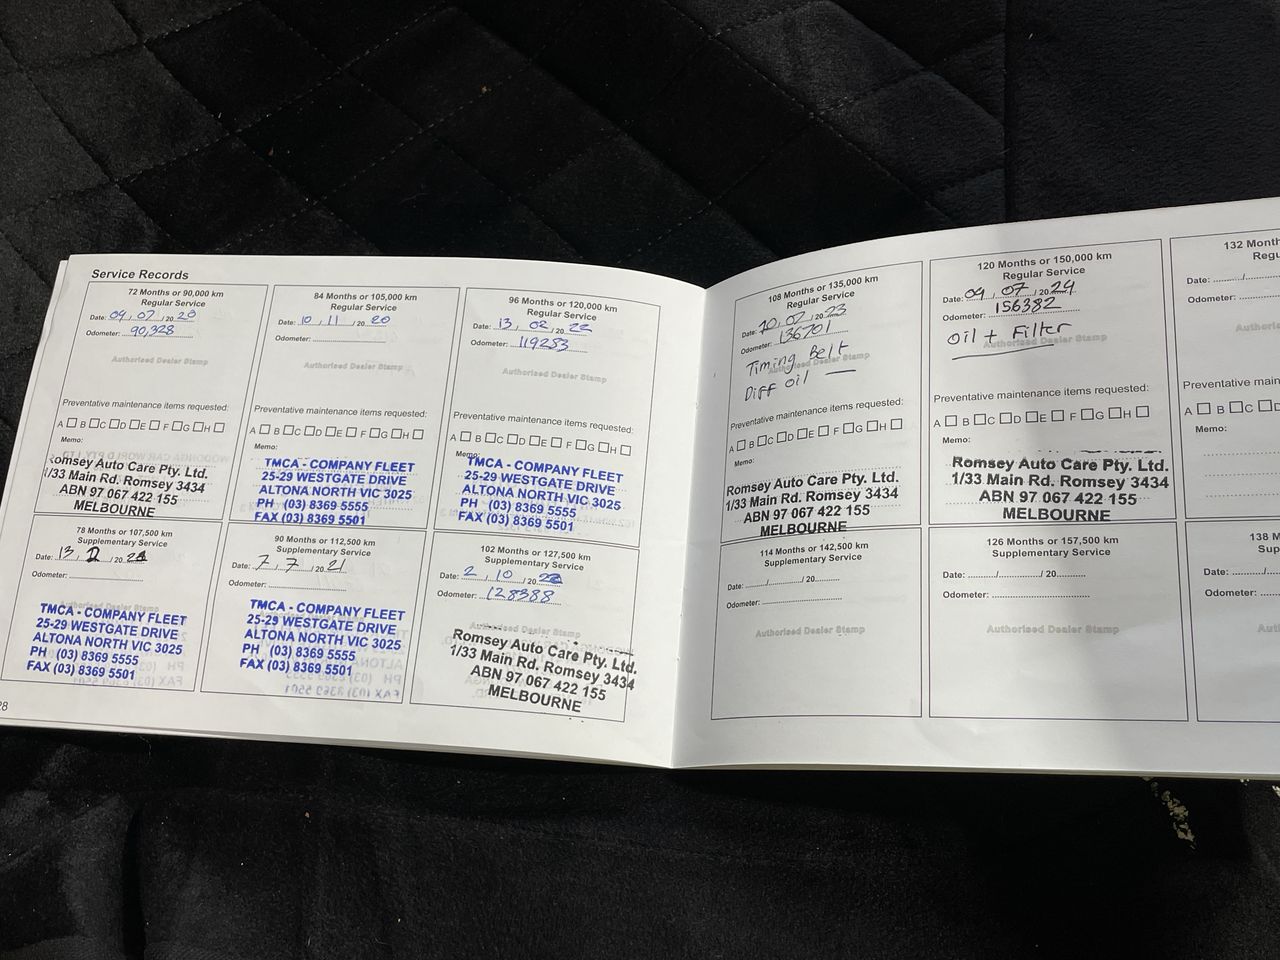 Service Records
72 Months or 90,000 km
Regular Service
Date: 09, 07 / 20 20
Odometer: 90,328
Authorised Dealer Stamp
Preventative maintenance items requested:
A B C D E F G H
Memo:
Romsey Auto Care Pty. Ltd.
1/33 Main Rd. Romsey 3434
ABN 97 067 422 155
MELBOURNE
78 Months or 107,500 km
Supplementary Service
Date: 13, / 20
Odometer:
Authorised Dealer Stamp
TMCA - COMPANY FLEET
25-29 WESTGATE DRIVE
ALTONA NORTH VIC 3025
PH (03) 8369 5555
FAX (03) 8369 5501
84 Months or 105,000 km
Regular Service
Date: 10, 11 / 20 20
Odometer:
Authorised Dealer Stamp
Preventative maintenance items requested:
A B C D E F G H
Memo:
TMCA - COMPANY FLEET
25-29 WESTGATE DRIVE
ALTONA NORTH VIC 3025
PH (03) 8369 5555
FAX (03) 8369 5501
90 Months or 112,500 km
Supplementary Service
Date: 7, 7 / 20 21
Odometer:
TMCA - COMPANY FLEET
25-29 WESTGATE DRIVE
ALTONA NORTH VIC 3025
PH (03) 8369 5555
FAX (03) 8369 5501
96 Months or 120,000 km
Regular Service
Date: 13, 02 / 20 22
Odometer: 119253
Authorised Dealer Stamp
Preventative maintenance items requested:
A B C D E F G H
Memo:
TMCA - COMPANY FLEET
25-29 WESTGATE DRIVE
ALTONA NORTH VIC 3025
PH (03) 8369 5555
FAX (03) 8369 5501
102 Months or 127,500 km
Supplementary Service
Date: 2, 10 / 20
Odometer: 128388
Authorised Dealer Stamp
Romsey Auto Care Pty. Ltd.
1/33 Main Rd. Romsey 3434
ABN 97 067 422 155
MELBOURNE
28
108 Months or 135,000 km
Regular Service
Date: 10, 07 / 20 23
Odometer: 136701
Timing Belt
Authorised Dealer Stamp
Diff oil
Preventative maintenance items requested:
A B C D E F G H
Memo:
Romsey Auto Care Pty. Ltd.
1/33 Main Rd. Romsey 3434
ABN 97 067 422 155
MELBOURNE
114 Months or 142,500 km
Supplementary Service
Date: / / 20
Odometer:
Authorised Dealer Stamp
120 Months or 150,000 km
Regular Service
Date: 09, 07 / 20 24
Odometer: 156382
Oil + Filter
Authorised Dealer Stamp
Preventative maintenance items requested:
A B C D E F G H
Memo:
Romsey Auto Care Pty. Ltd.
1/33 Main Rd. Romsey 3434
ABN 97 067 422 155
MELBOURNE
126 Months or 157,500 km
Supplementary Service
Date: / / 20
Odometer:
Authorised Dealer Stamp
132 Month
Regu
Date: /
Odometer:
Authoris
Preventative m
A B C D
Memo:
138 M
Sup
Date: /
Odometer: